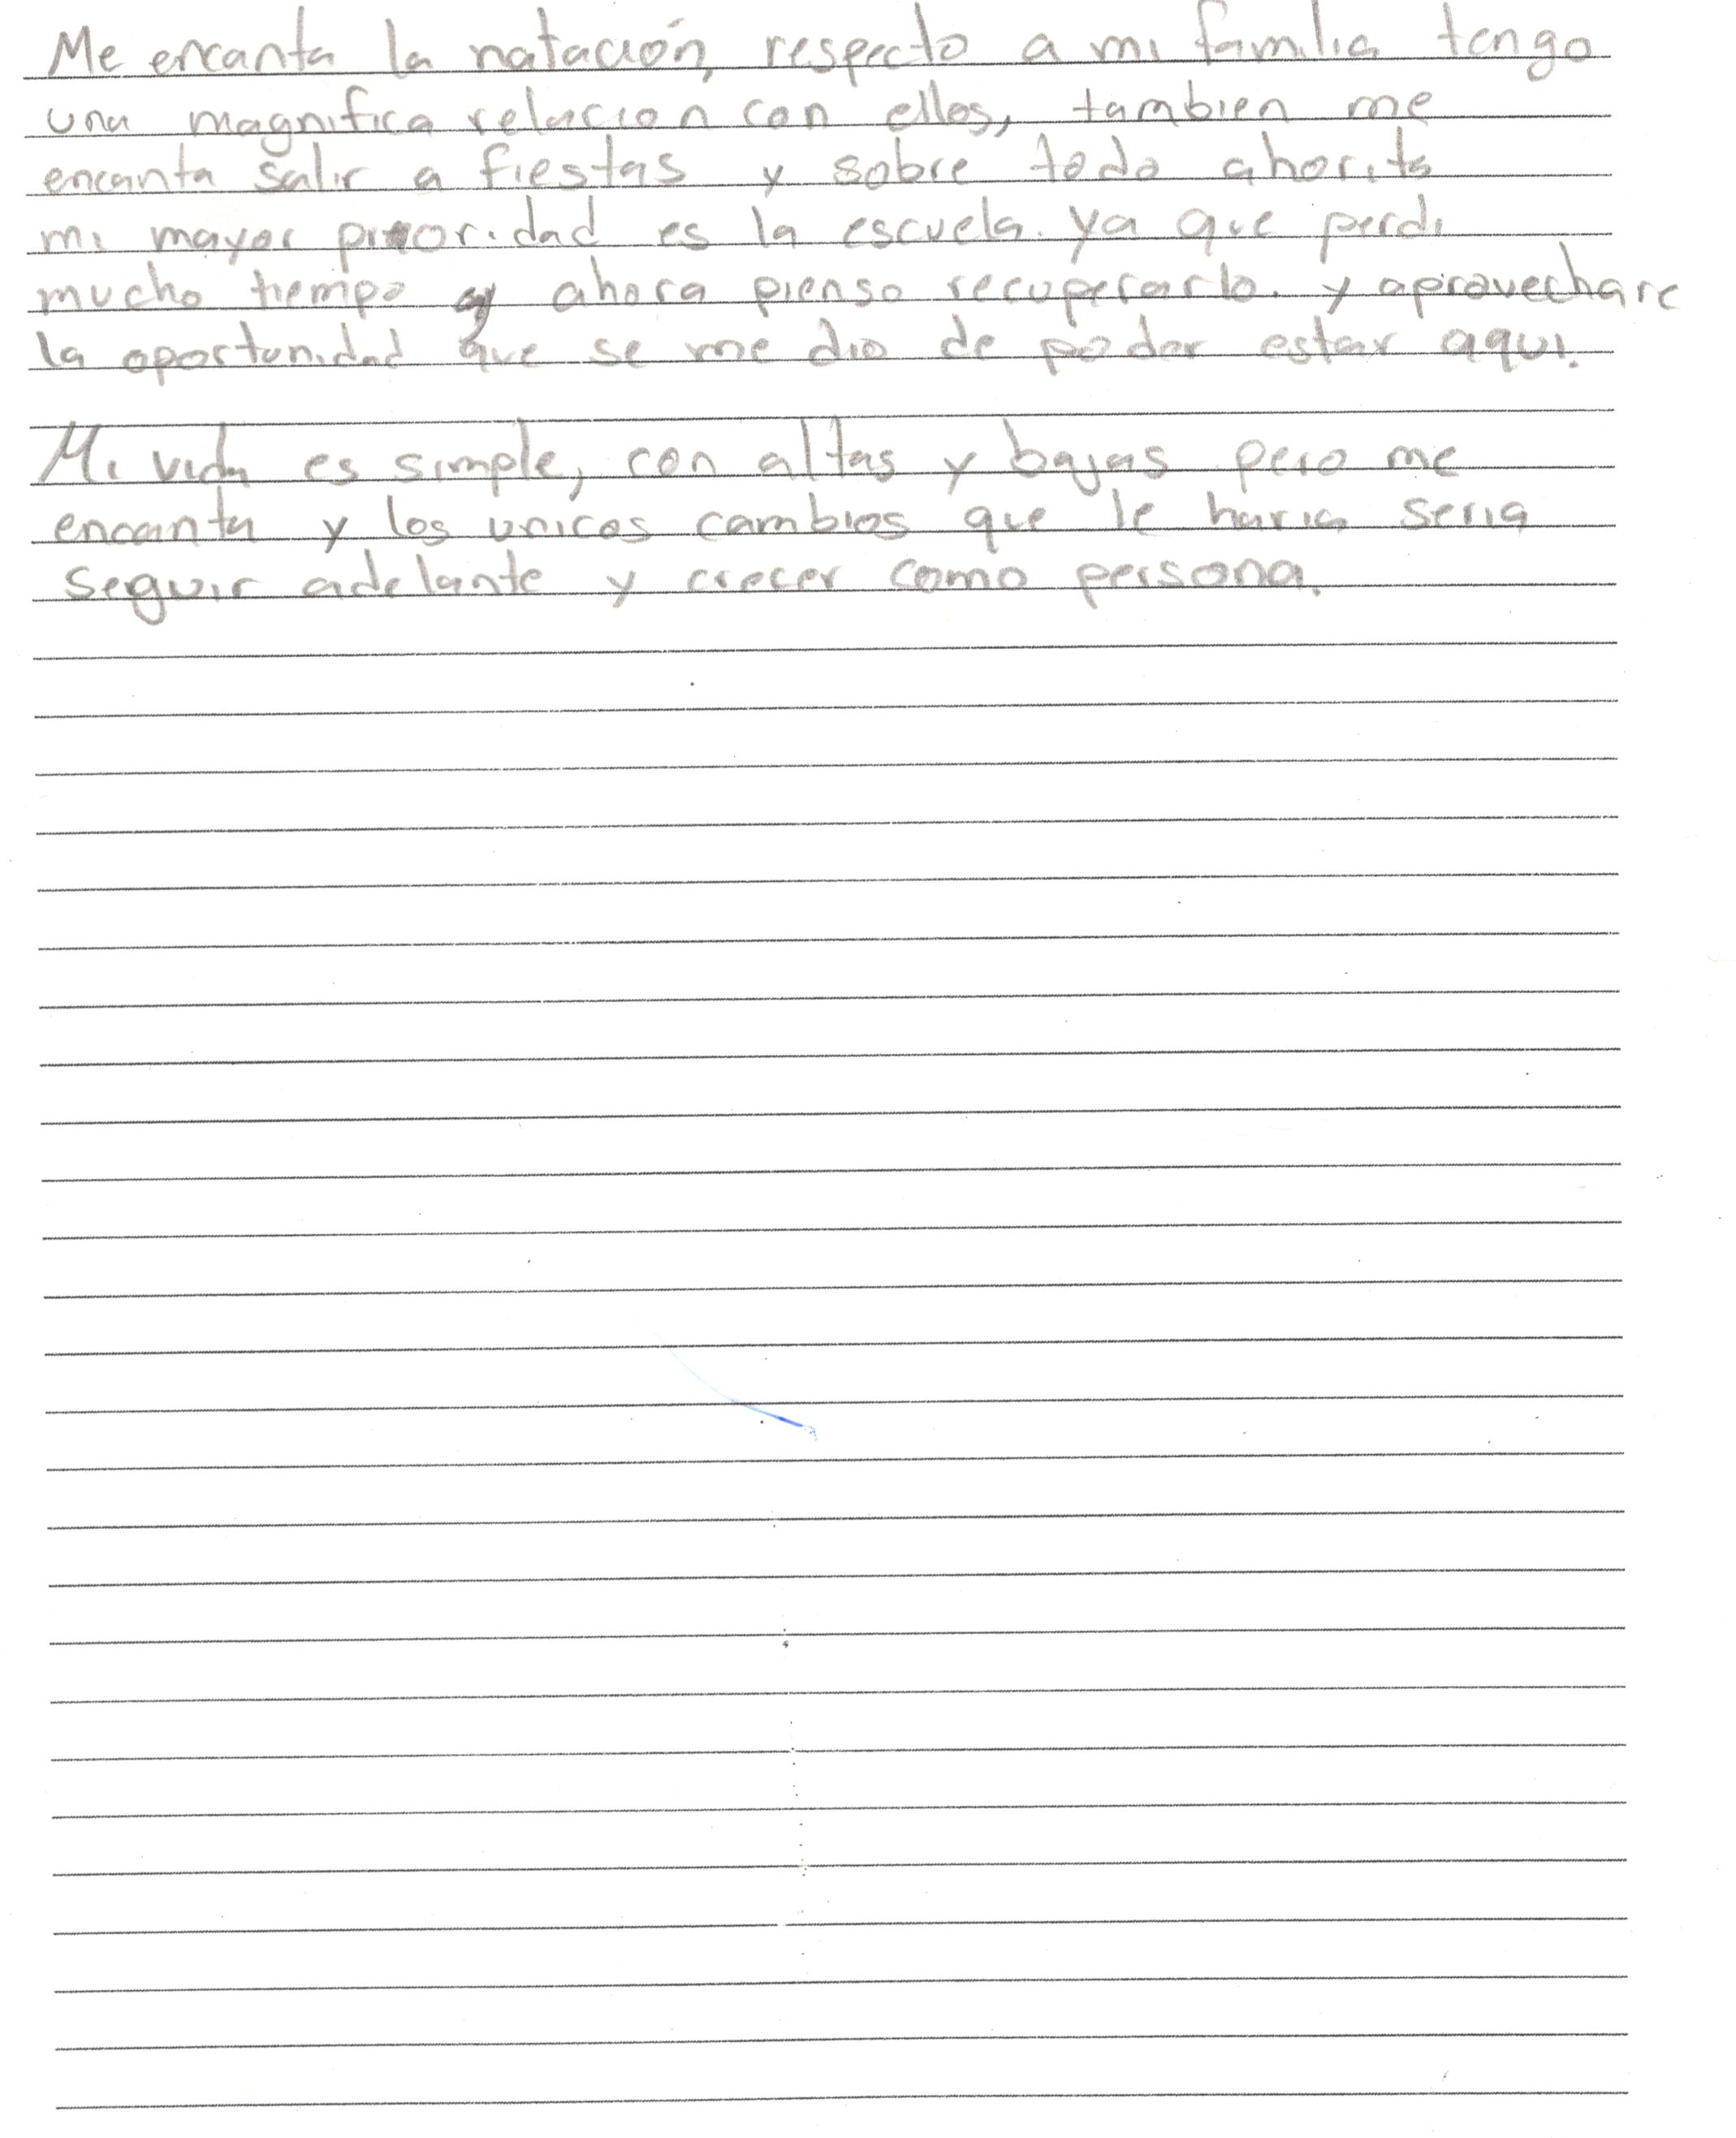 Me encanta la natación, respecto a mi familia tengo
una magnifica relacion con ellos, tambien me
encanta salir a fiestas y sobre todo ahorita
mi mayor prioridad es la escuela. ya que perdi
mucho tiempo y ahora pienso recuperarlo. y aprovechare
la oportunidad que se me dio de poder estar aqui.
Mi vida es simple, con altas y bajas pero me
encanta y los unicos cambios que le haria seria
seguir adelante y crecer como persona.